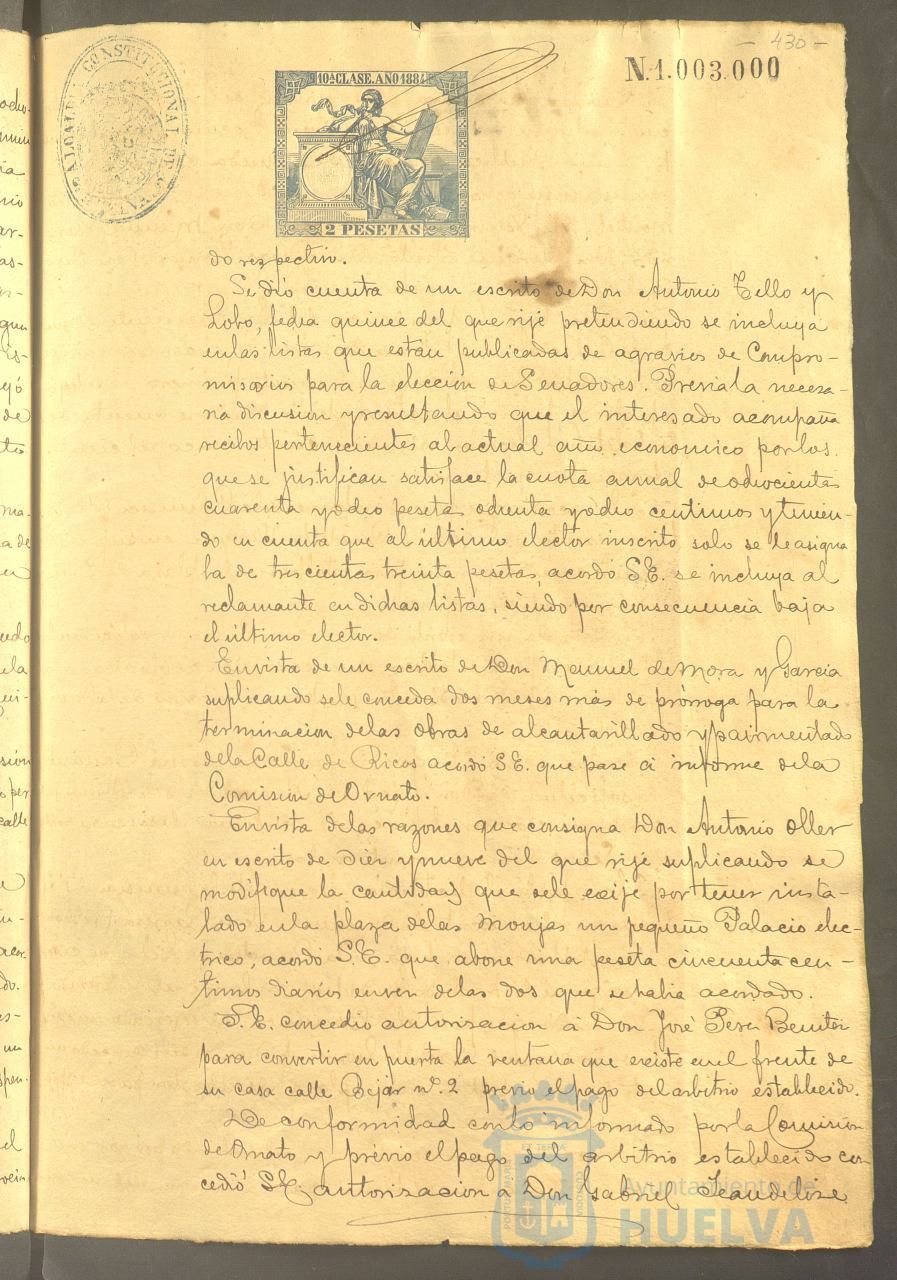 - 430 -
N.1.003.000
ALCALDIA CONSTITUCIONAL DE
HUELVA
10ª CLASE. AÑO 1884
2 PESETAS
do respectivo.
Se dió cuenta de un escrito de Don Antonio Tello y
Lobo, fecha quince del que rije pretendiendo se incluya
en las listas que estan publicadas de agravios de Compro-
misarios para la elección de Senadores. Previa la necesa-
ria discusion y resultando que el interesado acompaña
recibos pertenecientes al actual año economico por los
que se justifican satisface la cuota anual de ochocientas
cuarenta y ocho pesetas ochenta y ocho centimos y tenien-
do en cuenta que al último elector inscrito solo se le asigna
la de trescientas treinta pesetas, acordó S.E. se incluya al
reclamante en dichas listas, siendo por consecuencia baja
el último elector.
En vista de un escrito de Don Manuel de Mora y Garcia
suplicando se le conceda dos meses más de prórroga para la
terminacion de las obras de alcantarillado y pavimentado
de la Calle de Ricos acordó S.E. que pase á informe de la
Comision de Ornato.
En vista de las razones que consigna Don Antonio Oller
en escrito de diez y nueve del que rije suplicando se
modifique la cantidad que se le exije por tener insta-
lado en la plaza de las Monjas un pequeño Palacio elec-
trico, acordó S.E. que abone una peseta cincuenta cen-
timos diarios en vez de las dos que se habia acordado.
S.E. concedio autorizacion á Don José Perez Benitez
para convertir en puerta la ventana que existe en el frente de
su casa calle Bejar nº. 2 previo el pago del arbitrio establecido.
De conformidad con lo informado por la Comision
de Ornato y prévio el pago del arbitrio establecido con-
cedió S.E. autorizacion á Don Gabriel
Ayuntamiento de
HUELVA